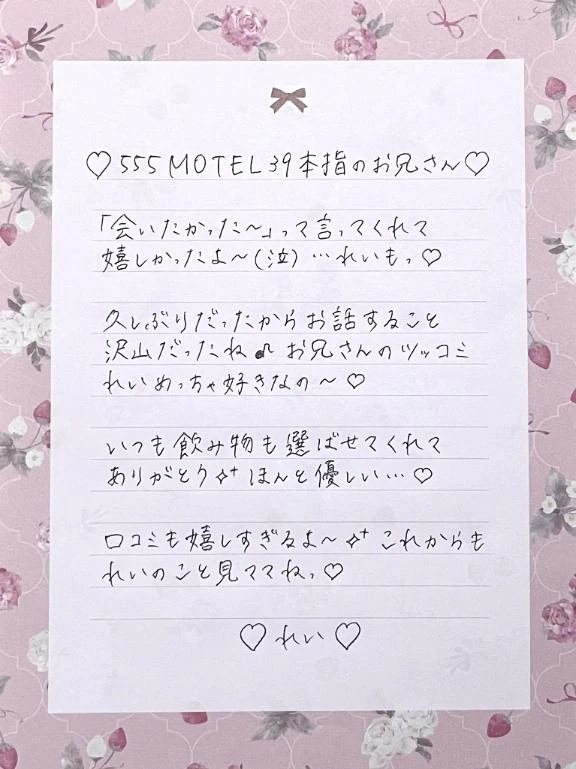 ♡555 MOTEL 39 本指のお兄さん♡
「会いたかった〜」って言ってくれて
嬉しかったよ〜(泣) …れいもっ♡
久しぶりだったからお話すること
沢山だったね♪ お兄さんのツッコミ
れいめっちゃ好きなの〜♡
いつも飲み物も選ばせてくれて
ありがとう✧⁺ ほんと優しい…♡
口コミも嬉しすぎるよ〜✧⁺ これからも
れいのこと見ててねっ♡
♡ れい ♡